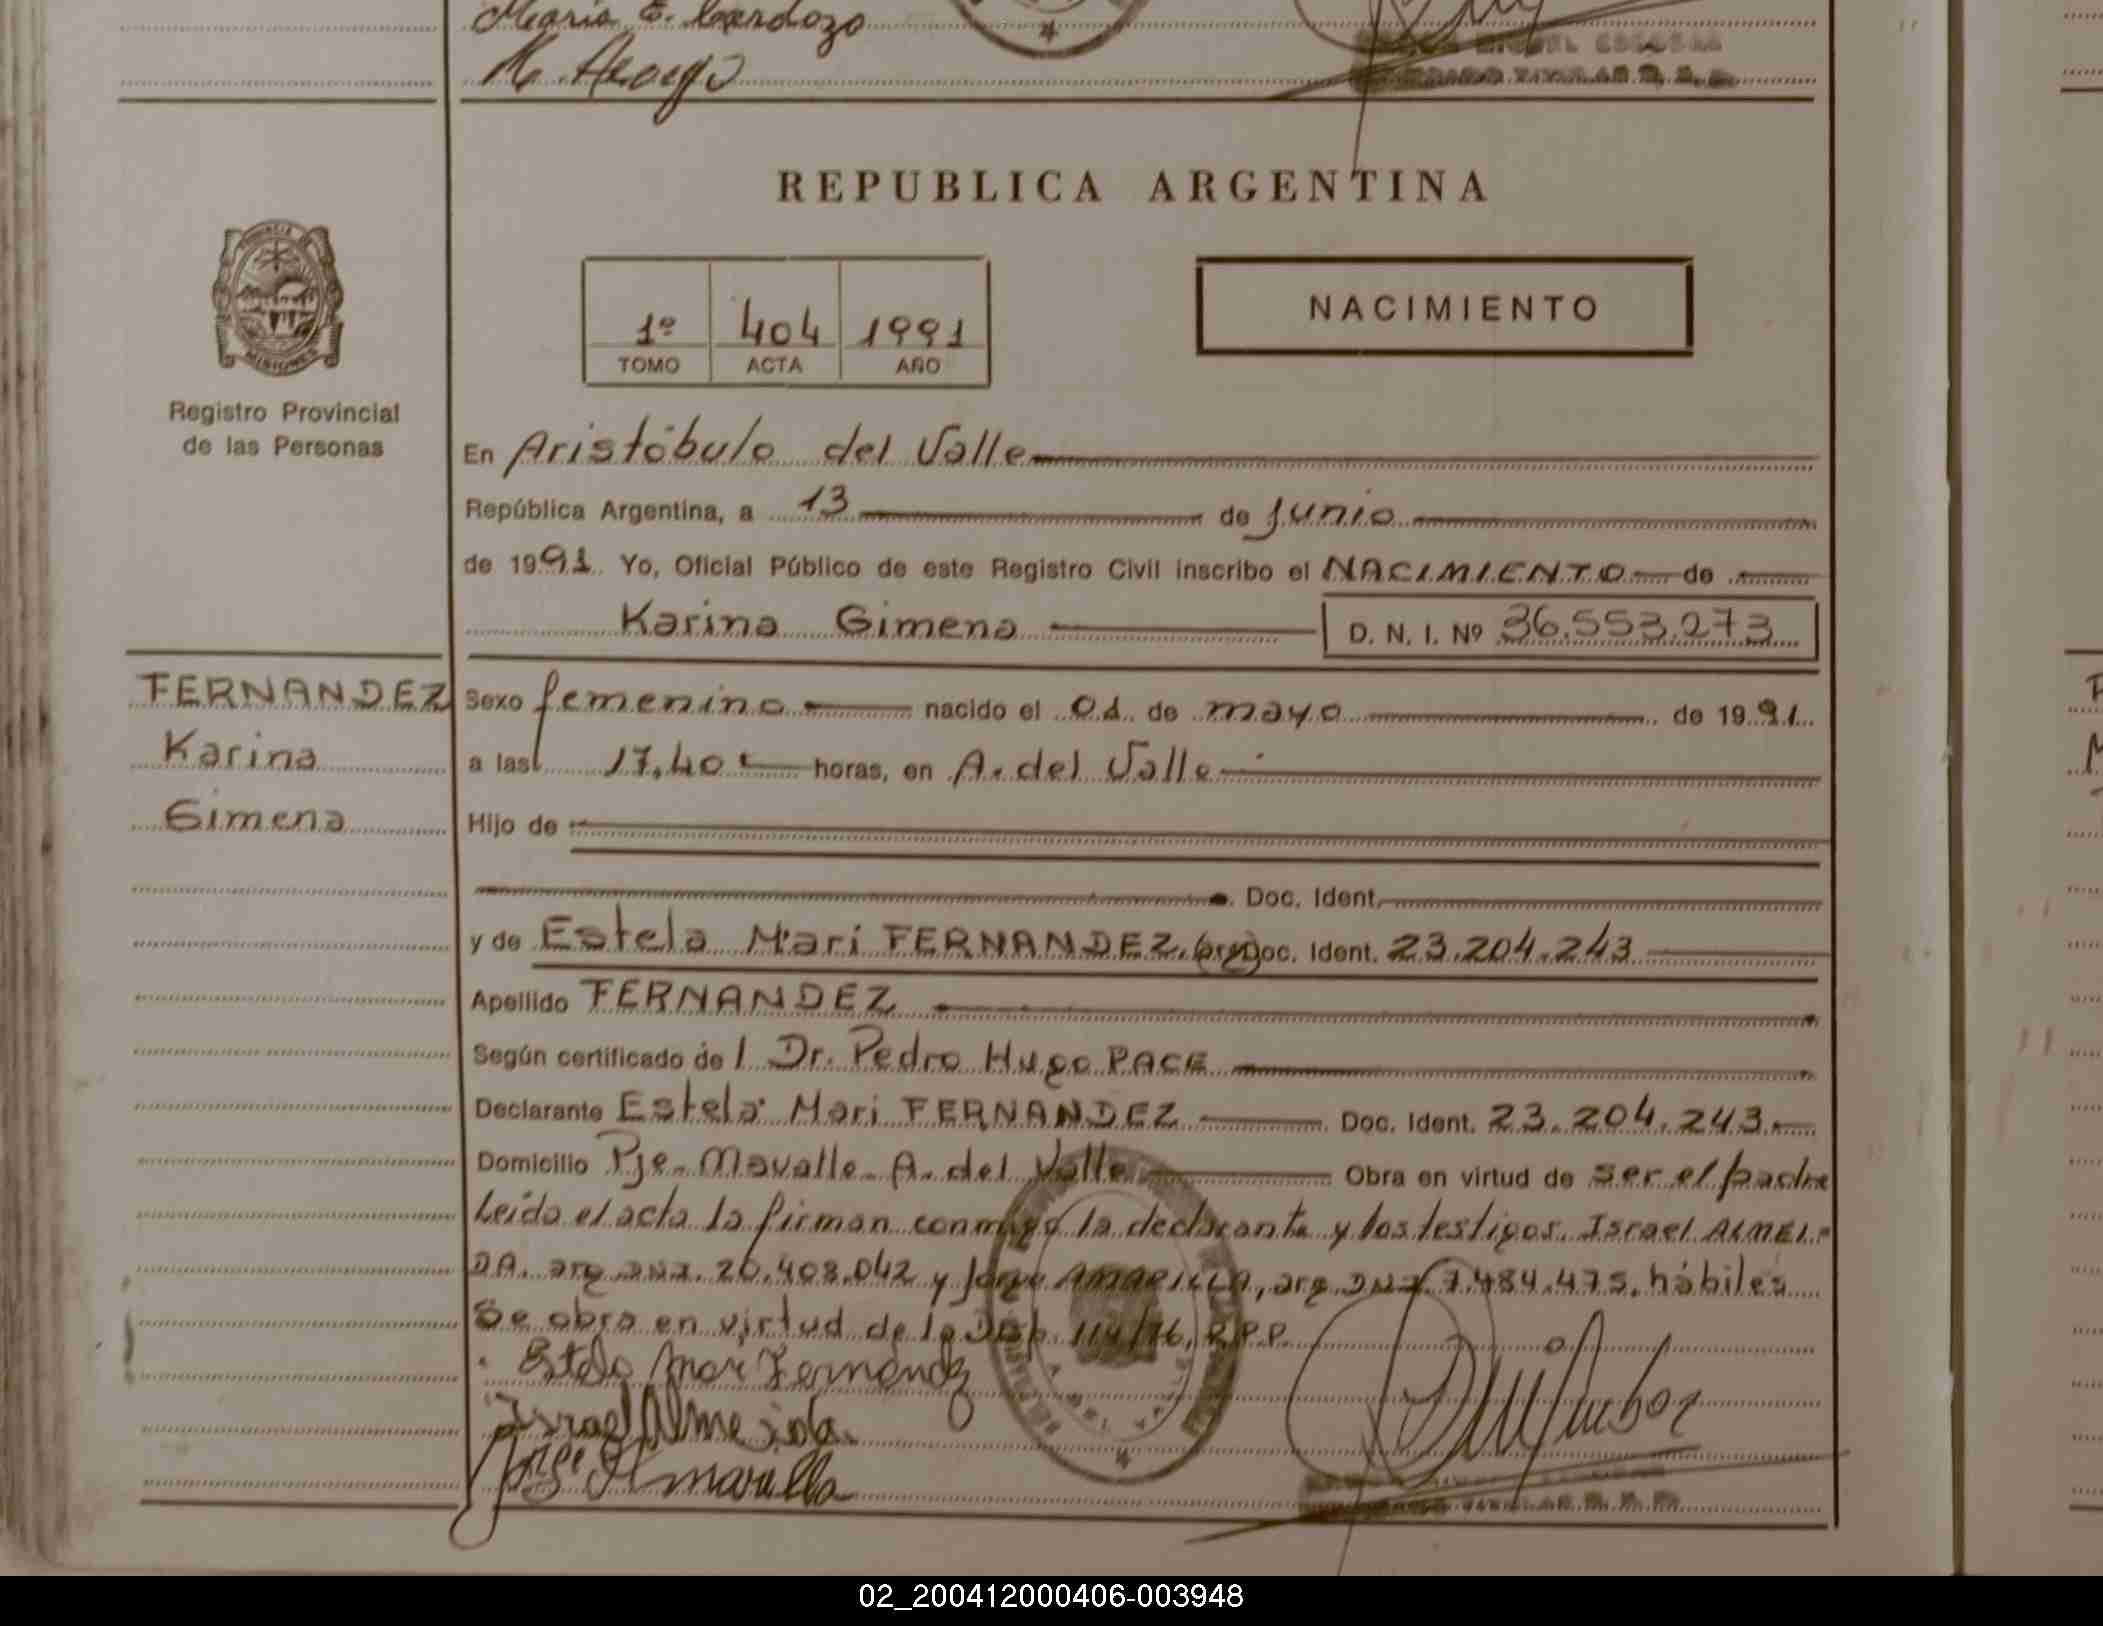 Maria E. Cardozo
REPUBLICA ARGENTINA
1º 404 1991
TOMO ACTA AÑO
NACIMIENTO
PROVINCIA DE
MISIONES
Registro Provincial
de las Personas
En Aristóbulo del Valle
República Argentina, a 13 de junio
de 1991 Yo, Oficial Público de este Registro Civil inscribo el NACIMIENTO de
Karina Gimena D. N. I. Nº 36.553.273
FERNANDEZ
Karina
Gimena
Sexo femenino nacido el 01 de mayo de 1991
a las 17,40 horas, en A. del Valle
Hijo de
Doc. Ident.
y de Estela Mari FERNANDEZ, (arg) Doc. Ident. 23.204.243
Apellido FERNANDEZ
Según certificado de l Dr. Pedro Hugo PACE
Declarante Estela Mari FERNANDEZ Doc. Ident. 23.204.243
Domicilio Pje. Mavalle A. del Valle Obra en virtud de ser el padre
Leida el acta la firman conmigo la declarante y los testigos Israel ALMEI-
DA. arg DNI. 20.408.042 y Jorge AMARILLA, arg DNI 7.484.475, hábiles
Se obra en virtud de la Disp. 114/76, R.P.P.
Estela Mar Fernandez
Israel Almeida
Jorge Amarilla
02_200412000406-003948